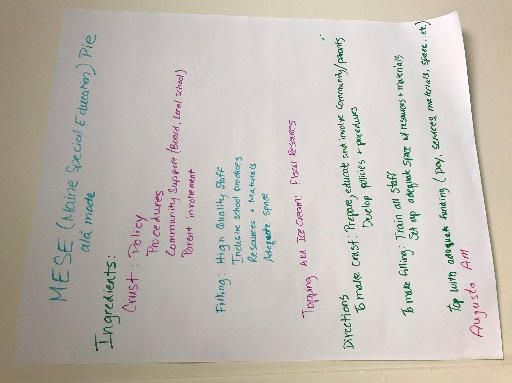 MESE (Maine Special Education) Pie
alá mode
Ingredients:
Crust: Policy
Procedures
Community Support (Board, Local School)
Parent involvement
Filling: High Quality Staff
Inclusive school practices
Resources + Materials
Adequate space
Topping AKA Ice Cream: Fiscal Resources
Directions
To make crust: Prepare, educate and involve community/parents
Develop policies + procedures
To make filling: Train all staff
Set up adequate space w/ resources + materials
Top with adequate funding (pay, services, materials, space, etc.)
Augusta AM